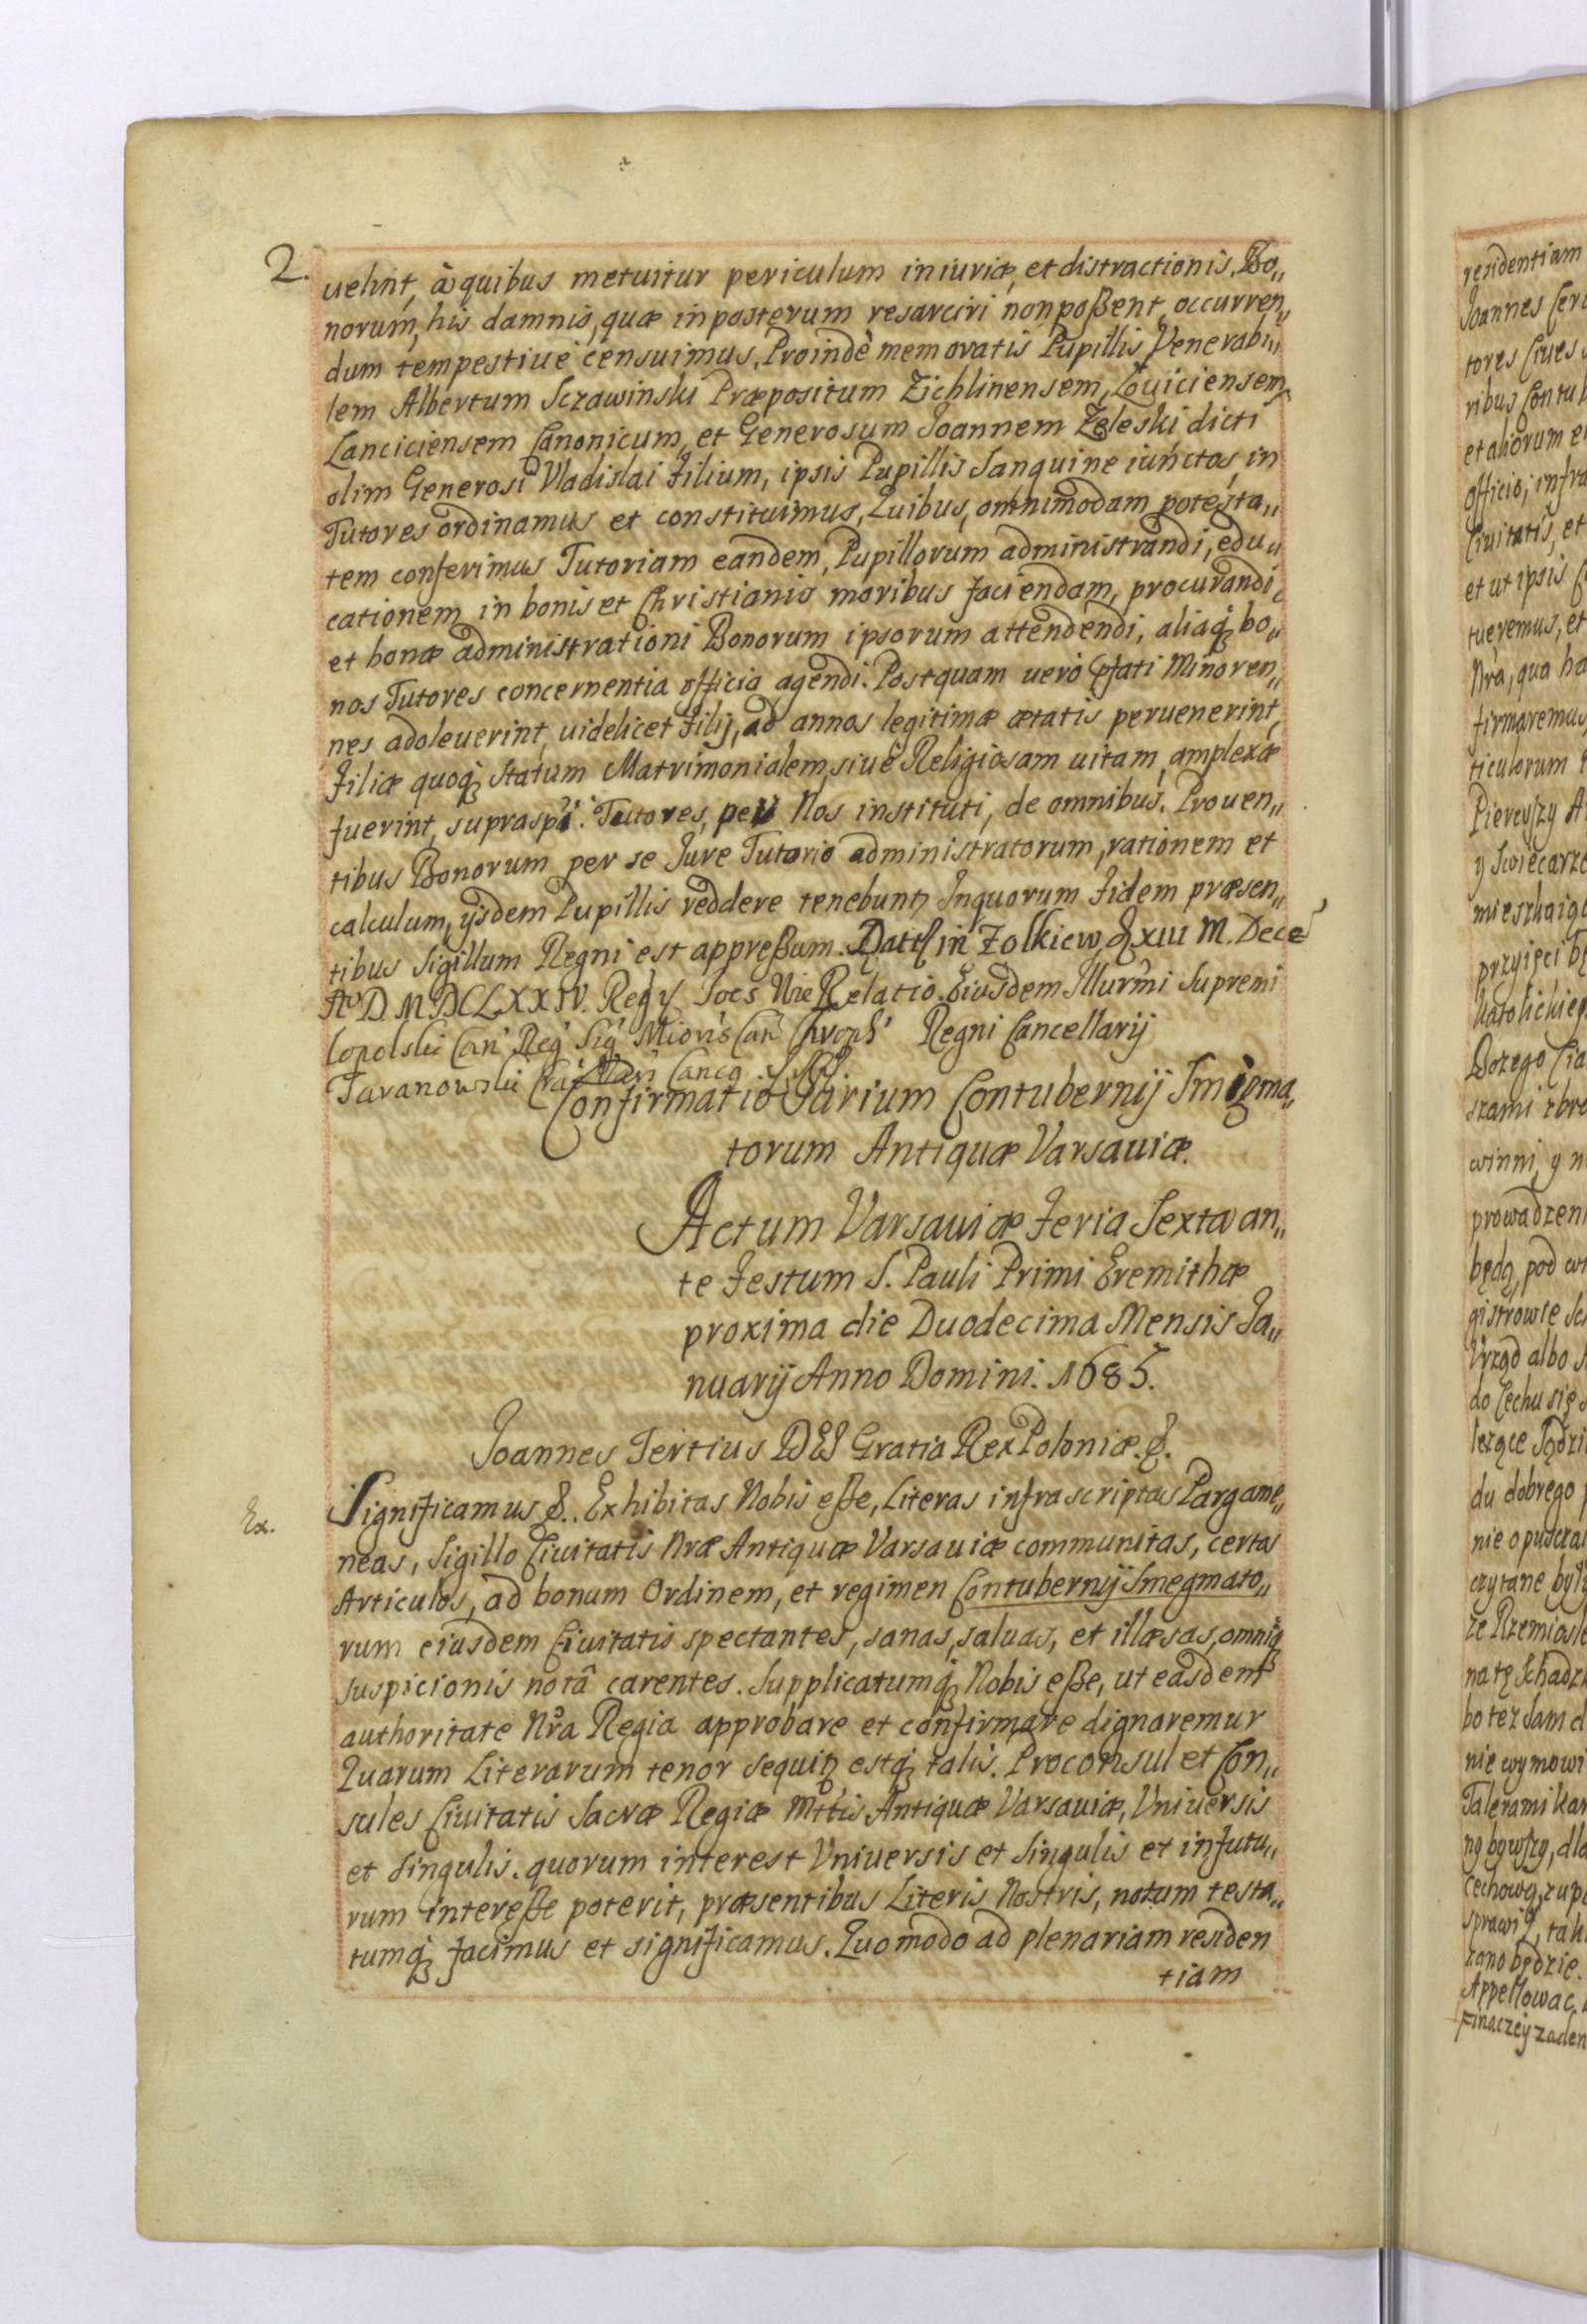 2.
uelint, à quibus metuitur periculum iniuriæ, et distractionis, Bo„
norum, his damnis, quæ inposterum resarciri non poßent, occurren„
dum tempestiuè censuimus. Proindè memoratis Pupillis Venerabi„
lem Albertum Sczawinski Præpositum Zichlinensem, Louiciensem,
Lanciciensem Canonicum, et Generosum Joannem Zeleski dicti
olim Generosi Vladislai Filium, ipsis Pupillis Sanguine iunctos, in
Tutores ordinamus et constituimus, Quibus, omnimodam potesta„
tem conferimus Tutoriam eandem, Pupillorum administrandi, edu„
cationem in bonis et Christianis moribus faciendam, procurandi,
et bonæ administrationi Bonorum ipsorum attendendi, aliaq bo„
nos Tutores concernentia officia agendi. Postquam uerò pfati Minoren„
nes adoleuerint, uidelicet Filij, ad annos legitimæ ætatis peruenerint,
Filiæ quoq Statum Matrimonialem, siuè Religiosam uitam, amplexæ
fuerint, suprasp̃i. Tutores, per Nos instituti, de omnibus. Prouen„
tibus Bonorum per se Jure Tutorio administratorum, rationem et
calculum, ijsdem Pupillis reddere tenebunt Inquorum Fidem præsen„
tibus Sigillum Regni est appreßum. Datt in Zolkiew XIII M. Dece
Aº D. M DCLXXXIV. Relatio Eiusdem Illurmi Supremi
Regni Cancellarij
Taranowski
Confirmatio Jurium Contubernij Smigma„
torum Antiquæ Varsauiæ.
Actum Varsauiæ Feria Sexta an„
te Festum S. Pauli Primi Eremithæ
proxima die Duodecima Mensis Ja„
nuarij Anno Domini. 1685.
Joannes Tertius DEI Gratia Rex Poloniæ. &.
Ex.
Significamus &. Exhibitas Nobis eße, Literas infrascriptas Pargame„
neas, Sigillo Ciuitatis Nræ Antiquæ Varsauiæ communitas, certos
Articulos, ad bonum Ordinem, et regimen Contubernij Smegmato„
rum eiusdem Ciuitatis spectantes, sanas, saluas, et illæsas, omniq
suspicionis notâ carentes. Supplicatumq Nobis eße, ut easdem
authoritate Nr̃a Regia approbare et confirmare dignaremur
Quarum Literarum tenor sequit estq talis. Proconsul et Con„
sules Ciuitatis Sacræ Regiæ Mttis Antiquæ Varsauiæ, Vniuersis
et Singulis. quorum interest Vniuersis et Singulis et infutu„
rum intereße poterit, præsentibus Literis Nostris, notum testa„
tumq facimus et significamus. Quomodo ad plenariam residen
tiam
residentiam
tores Ciues
et aliorum
officio, infra
Ciuitatis, et
et ut ipsis
tueremus, et
Nra, qua ha
firmaremus
ticulorum
Pierwszy
przyięci
winni, y
prowadzeni
będą, pod
albo
do Cechu się
du dobrego
nie
czytane
ze Rzemiosło
bo tez Sam
nie wymowi
Talerami
Cechową,
zono będzie.
Appellowac